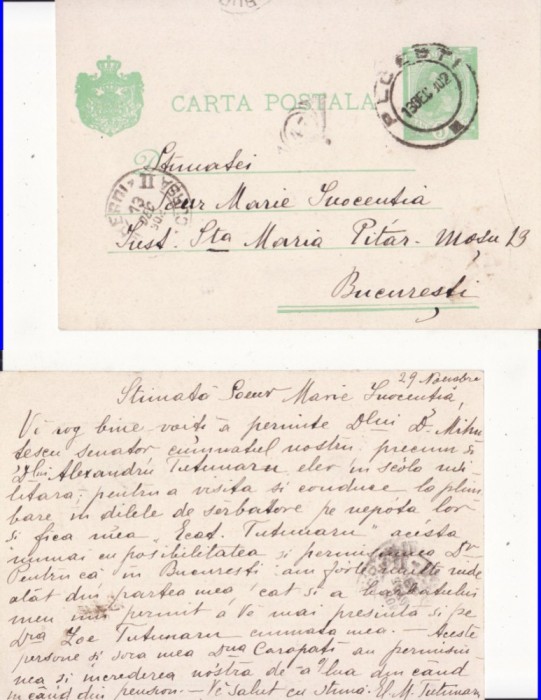 CARTA POSTALA
PLOESTI
13 DEC 902
Stimatei
Soeur Marie Inocentia
Inst. Sta Maria Pitar-Moșu 19
București
29 Noembre
Stimată Soeur Marie Inocentiă,
Vĕ rog bine-voiți a permite Dlui D. Mihu
tescu senator cumnatul nostru precum și
Dlui Alexandru Tutunaru elev în scóla mi-
litara, pentru a visita si conduce la plim
bare in dilele de serbatore pe nepóta lor
si fica mea "Ecat. Tutunaru" acésta
numai cu posibilitatea si permisiunea Dv
Pentru că în Bucuresti am multe rude
atât din partea mea cât si a barbatului
meu imi permit á Vĕ mai presinta si pe
Dna Zoe Tutunaru cumnata mea. — Aceste
persone si sora mea Dna Carapati au permisiu
nea si increderea nóstra de a o lua din când
in când din pension. — Vĕ salut cu stima. El. M. Tutunar